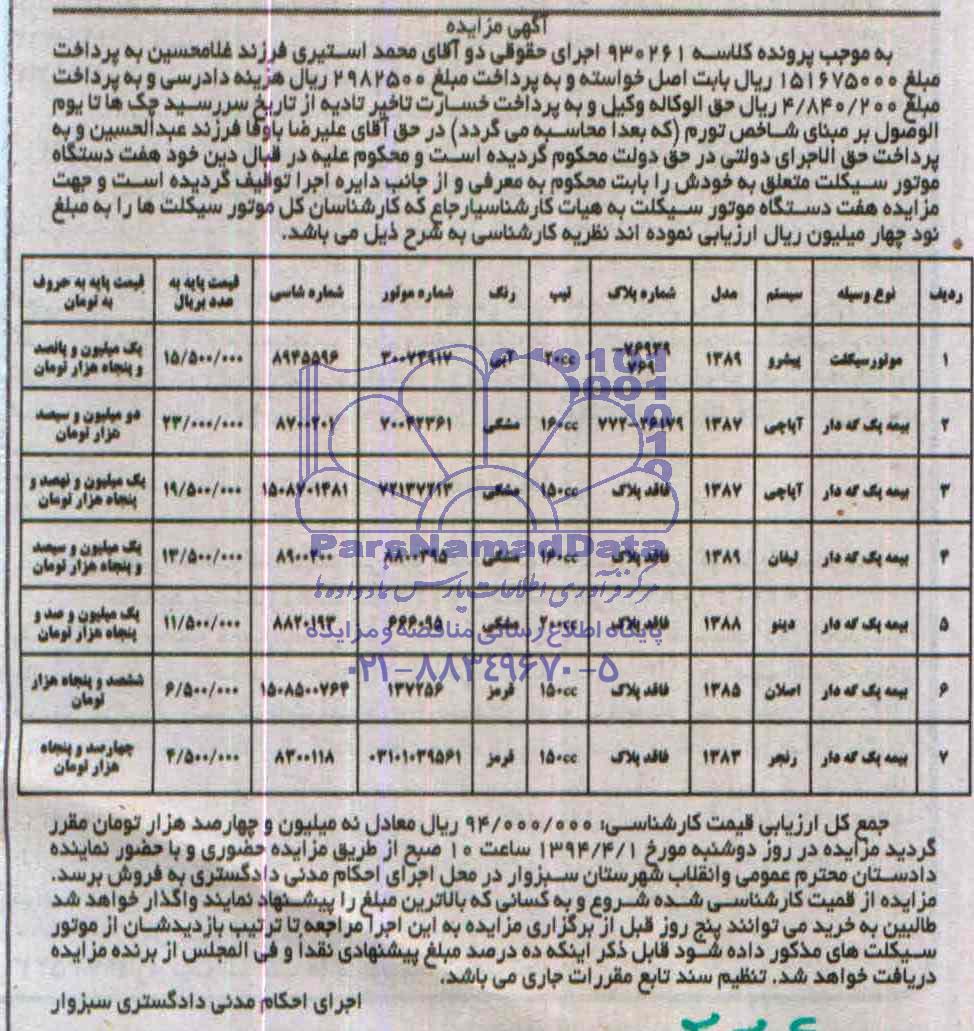 آگهی مزایده
به موجب پرونده کلاسه ۹۳۰۲۶۱ اجرای حقوقی دو آقای محمد استیری فرزند غلامحسین به پرداخت
مبلغ ۱۵۱۶۷۵۰۰۰ ریال بابت اصل خواسته و به پرداخت مبلغ ۲۹۸۲۵۰۰ ریال هزینه دادرسی و به پرداخت
مبلغ ۴/۸۴۰/۲۰۰ ریال حق الوکاله وکیل و به پرداخت خسارت تاخیر تادیه از تاریخ سررسید چک ها تا یوم
الوصول بر مبنای شاخص تورم (که بعدا محاسبه می گردد) در حق آقای علیرضا باوفا فرزند عبدالحسین و به
پرداخت حق الاجرای دولتی در حق دولت محکوم گردیده است و محکوم علیه در قبال دین خود هفت دستگاه
موتور سیکلت متعلق به خودش را بابت محکوم به معرفی و از جانب دایره اجرا توقیف گردیده است و جهت
مزایده هفت دستگاه موتور سیکلت به هیات کارشناسیارجاع که کارشناسان کل موتور سیکلت ها را به مبلغ
نود چهار میلیون ریال ارزیابی نموده اند نظریه کارشناسی به شرح ذیل می باشد.
ردیف نوع وسیله سیستم مدل شماره پلاک تیپ رنگ شماره موتور شماره شاسی قیمت پایه به عدد بریال قیمت پایه به حروف به تومان
۱ موتورسیکلت پیشرو ۱۳۸۹ ۷۶۹ آبی ۸۹۴۵۵۹۶ ۱۵/۵۰۰/۰۰۰ یک میلیون و پانصد و پنجاه هزار تومان
۲ بیمه یک که دار آپاچی ۱۳۸۷ ۱۶۰cc مشکی ۷۰۰۴۲۳۶۱ ۸۷۰۰۲۰۱ ۲۳/۰۰۰/۰۰۰ دو میلیون و سیصد هزار تومان
۳ بیمه یک که دار آپاچی ۱۳۸۷ فاقد پلاک ۱۵۰cc مشکی ۷۲۱۳۷۲۱۳ ۱۵۰۸۷۰۱۴۸۱ ۱۹/۵۰۰/۰۰۰ یک میلیون و نهصد و پنجاه هزار تومان
۴ بیمه یک که دار لیفان ۱۳۸۹ فاقد پلاک ۱۶۰cc مشکی ۸۸۰۰۳۹۵ ۸۹۰۰۲۰۰ ۱۳/۵۰۰/۰۰۰ یک میلیون و سیصد و پنجاه هزار تومان
۵ بیمه یک که دار دینو ۱۳۸۸ فاقد پلاک ۲۰۰cc مشکی ۶۶۶۰۹۵ ۸۸۲۰۱۹۳ ۱۱/۵۰۰/۰۰۰ یک میلیون و صد و پنجاه هزار تومان
۶ بیمه یک که دار اصلان ۱۳۸۵ فاقد پلاک ۱۵۰cc قرمز ۱۳۷۲۵۶ ۱۵۰۸۵۰۰۷۶۴ ۶/۵۰۰/۰۰۰ ششصد و پنجاه هزار تومان
۷ بیمه یک که دار رنجر ۱۳۸۳ فاقد پلاک ۱۵۰cc قرمز ۰۳۱۰۱۰۳۹۵۶۱ ۸۳۰۰۱۱۸ ۴/۵۰۰/۰۰۰ چهارصد و پنجاه هزار تومان
ParsNamadData
مرکز فرآوری اطلاعات پارس نماد داده ها
پایگاه اطلاع رسانی مناقصه و مزایده
۰۲۱-۸۸۳۴۹۶۷۰-۵
جمع کل ارزیابی قیمت کارشناسی: ۹۴/۰۰۰/۰۰۰ ریال معادل نه میلیون و چهارصد هزار تومان مقرر
گردید مزایده در روز دوشنبه مورخ ۱۳۹۴/۴/۱ ساعت ۱۰ صبح از طریق مزایده حضوری و با حضور نماینده
دادستان محترم عمومی وانقلاب شهرستان سبزوار در محل اجرای احکام مدنی دادگستری به فروش برسد.
مزایده از قمیت کارشناسی شده شروع و به کسانی که بالاترین مبلغ را پیشنهاد نمایند واگذار خواهد شد
طالبین به خرید می توانند پنج روز قبل از برگزاری مزایده به این اجرا مراجعه تا ترتیب بازدیدشان از موتور
سیکلت های مذکور داده شود قابل ذکر اینکه ده درصد مبلغ پیشنهادی نقدا و فی المجلس از برنده مزایده
دریافت خواهد شد. تنظیم سند تابع مقررات جاری می باشد.
اجرای احکام مدنی دادگستری سبزوار